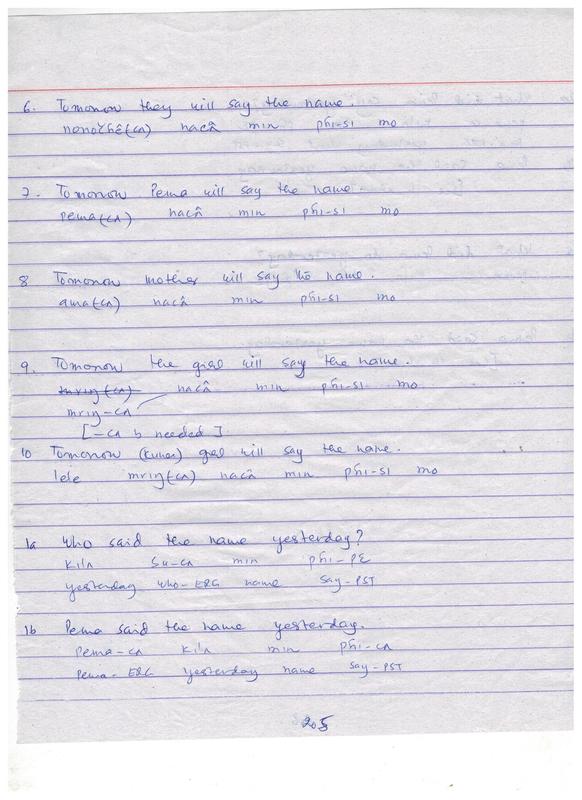 6. Tomorrow they will say the name.
nonothê(cʌ) nacâ min phi-si mo
7. Tomorrow Pema will say the name.
pema(cʌ) nacâ min phi-si mo
8 Tomorrow mother will say the name.
ama(cʌ) nacâ min phi-si mo
9. Tomorrow the girl will say the name.
mriŋ(cʌ) nacâ min phi-si mo
mriŋ-cʌ
[-cʌ is needed]
10 Tomorrow girl will say the name.
lele mriŋ(cʌ) nacâ min phi-si mo
1a Who said the name yesterday?
Kilʌ Su-cʌ min phi-PE
yesterday who-ERG name say-PST
1b Pema said the name yesterday.
Pema-cʌ Kilʌ min phi-cʌ
Pema-ERG yesterday name say-PST